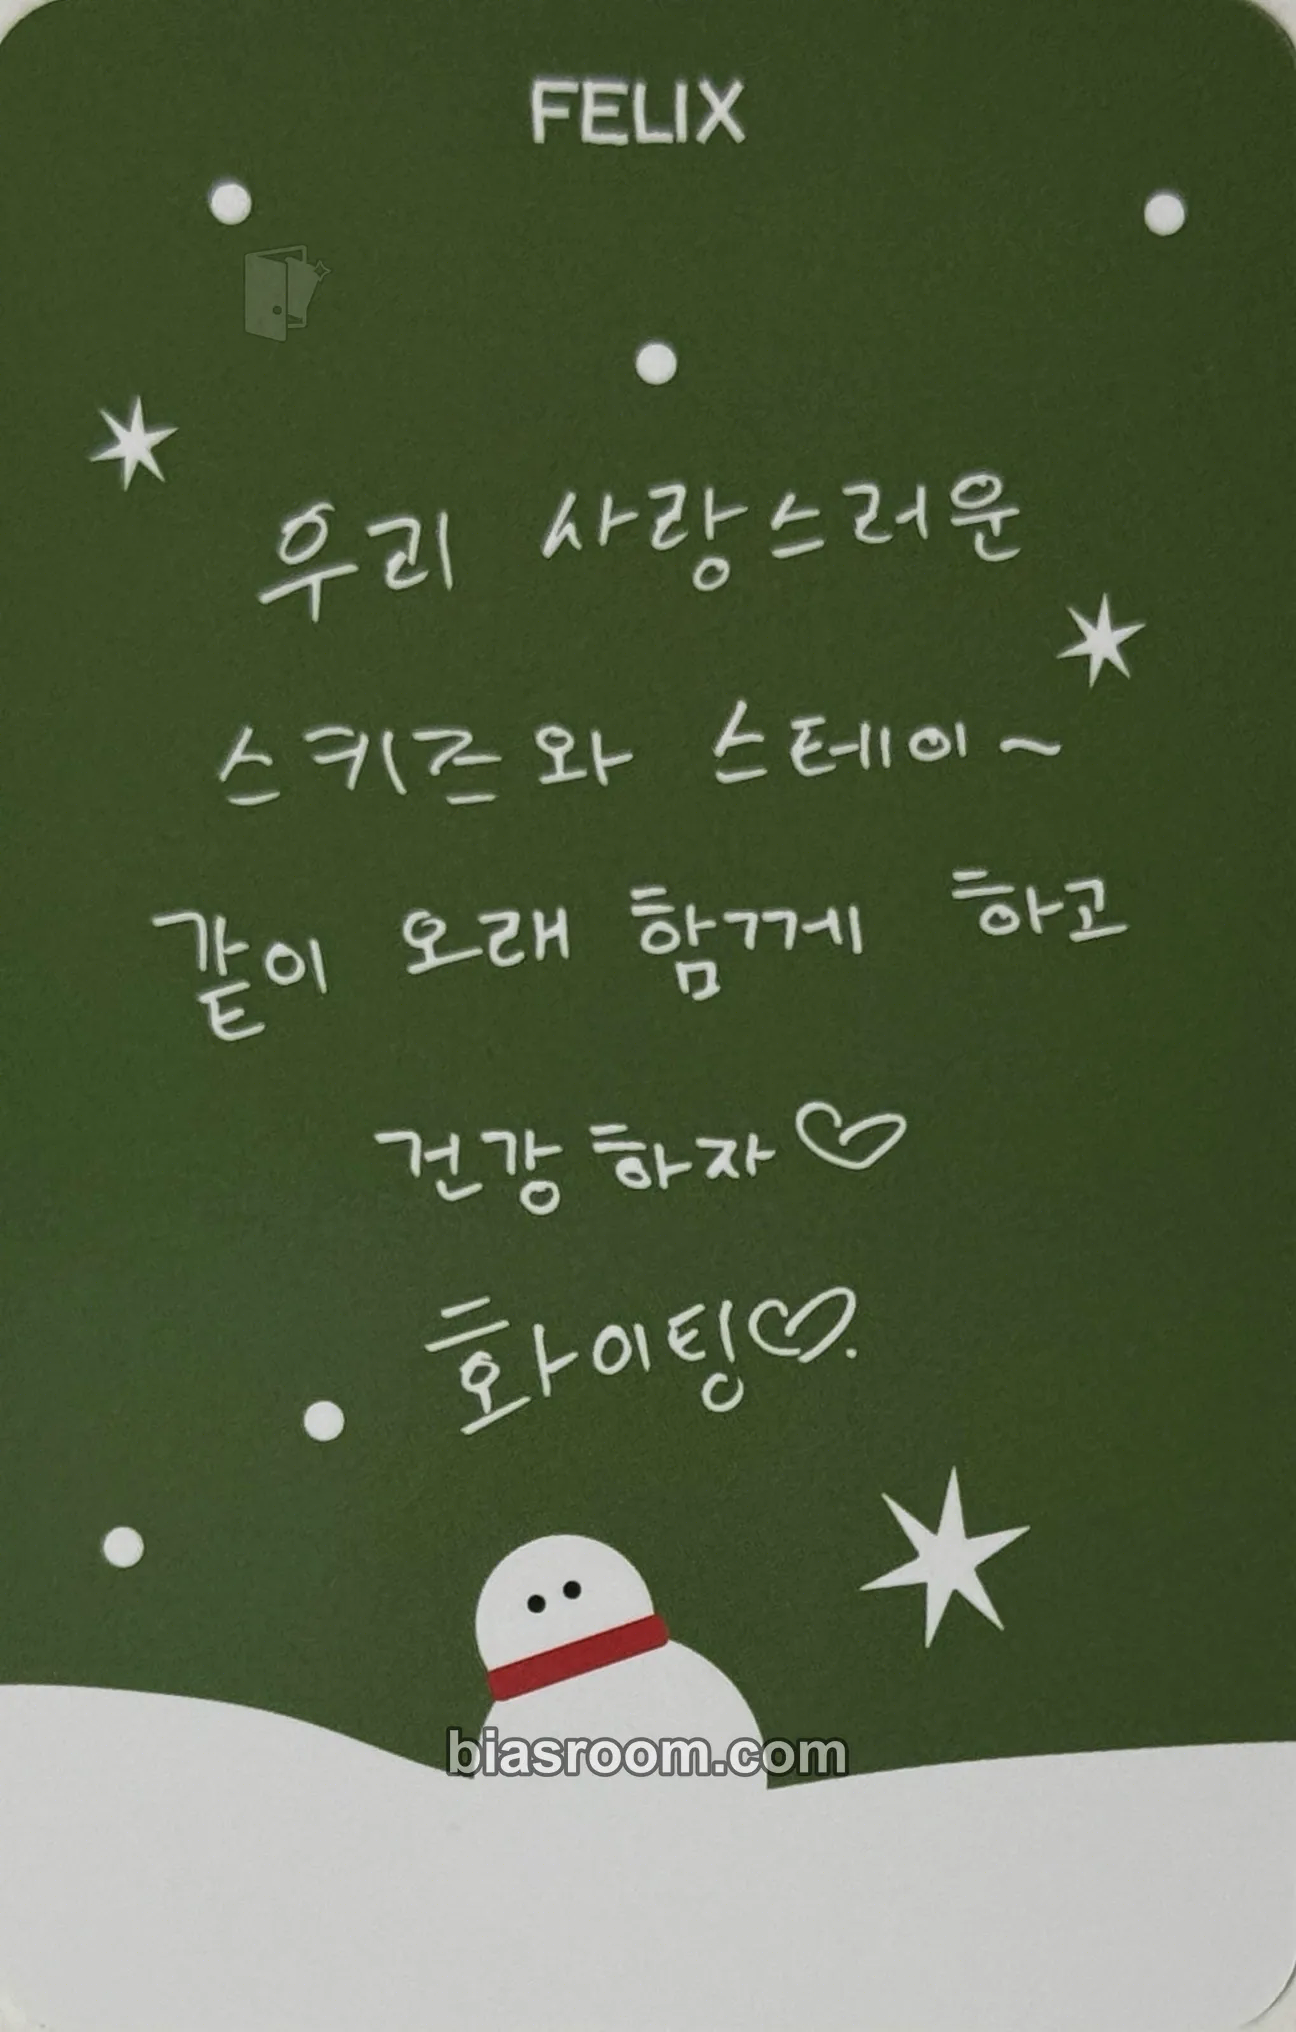 FELIX
우리 사랑스러운
스키즈와 스테이~
같이 오래 함께 하고
건강하자♡
화이팅♡.
biasroom.com